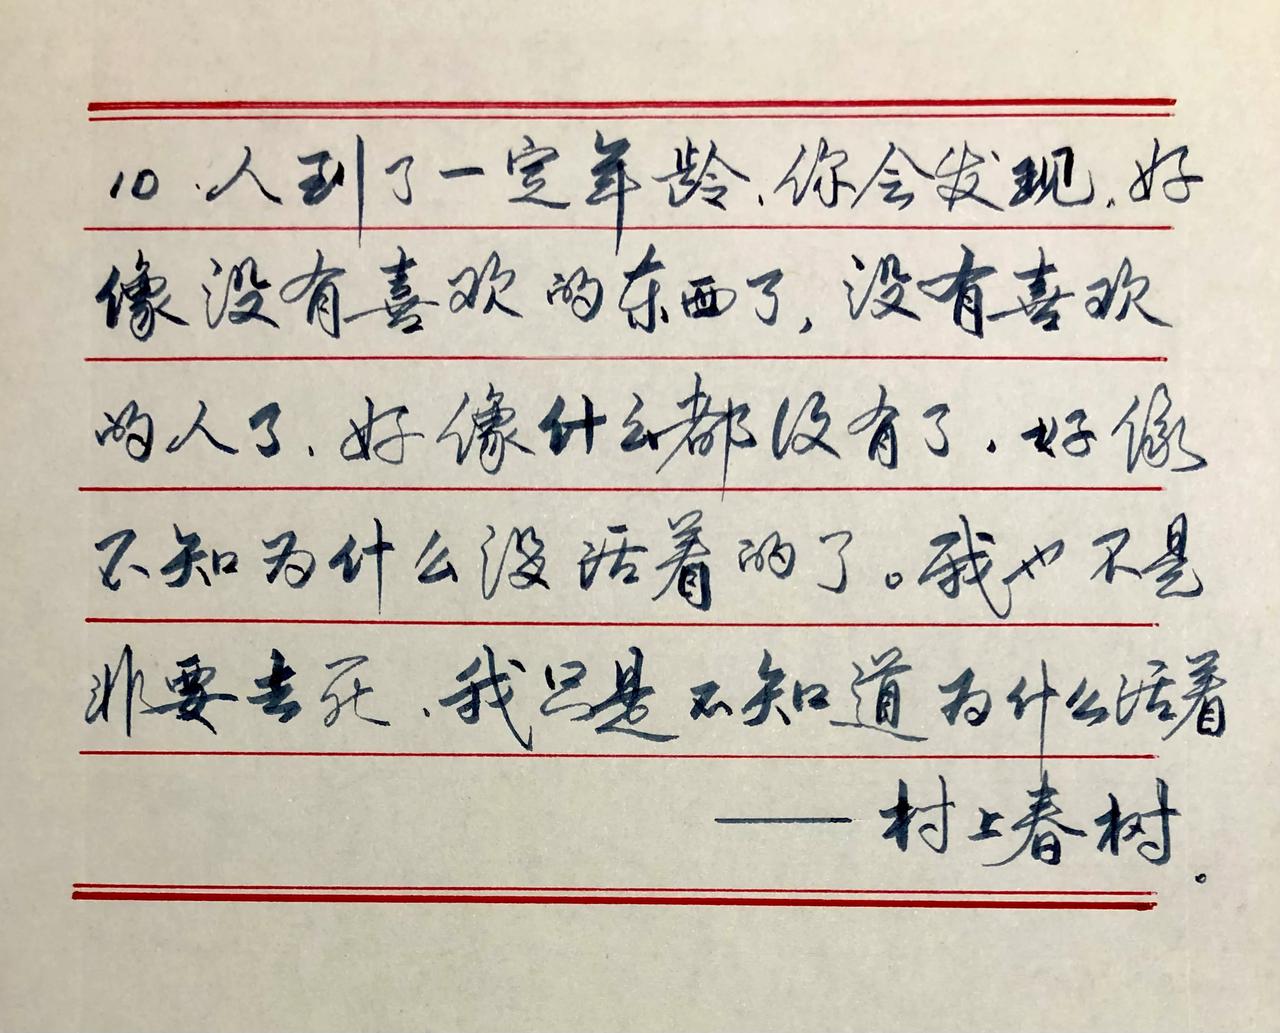 10、人到了一定年龄、你会发现、好
像没有喜欢的东西了，没有喜欢
的人了、好像什么都没有了、好像
不知为什么没活着的了。我也不是
非要去死、我只是不知道为什么活着
——村上春树。